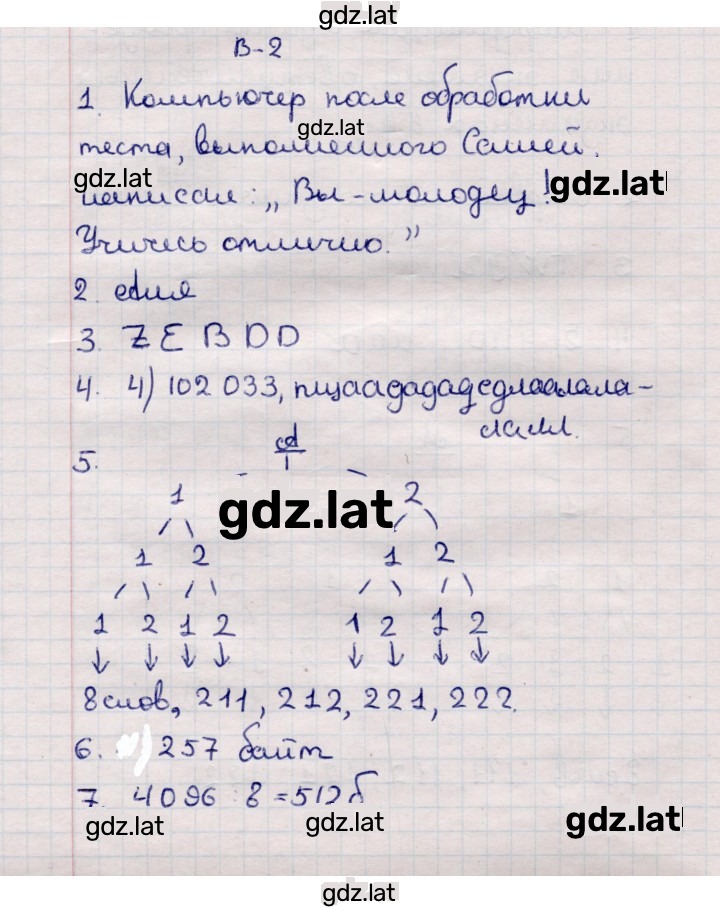 gdz.lat
В-2
1. Компьютер после обработки
gdz.lat
теста, выполненного Сашей,
gdz.lat
написал: „Вы - молодец!
gdz.lat
Учитесь отлично."
2.
3. Z E B D D
4. 4) 102 033,
5.
1 2
gdz.lat
1 2 1 2
1 2 1 2 1 2 1 2
8 слов, 211, 212, 221, 222.
6. 257 байт
7. 4096 : 8 = 512 б
gdz.lat gdz.lat gdz.lat
gdz.lat